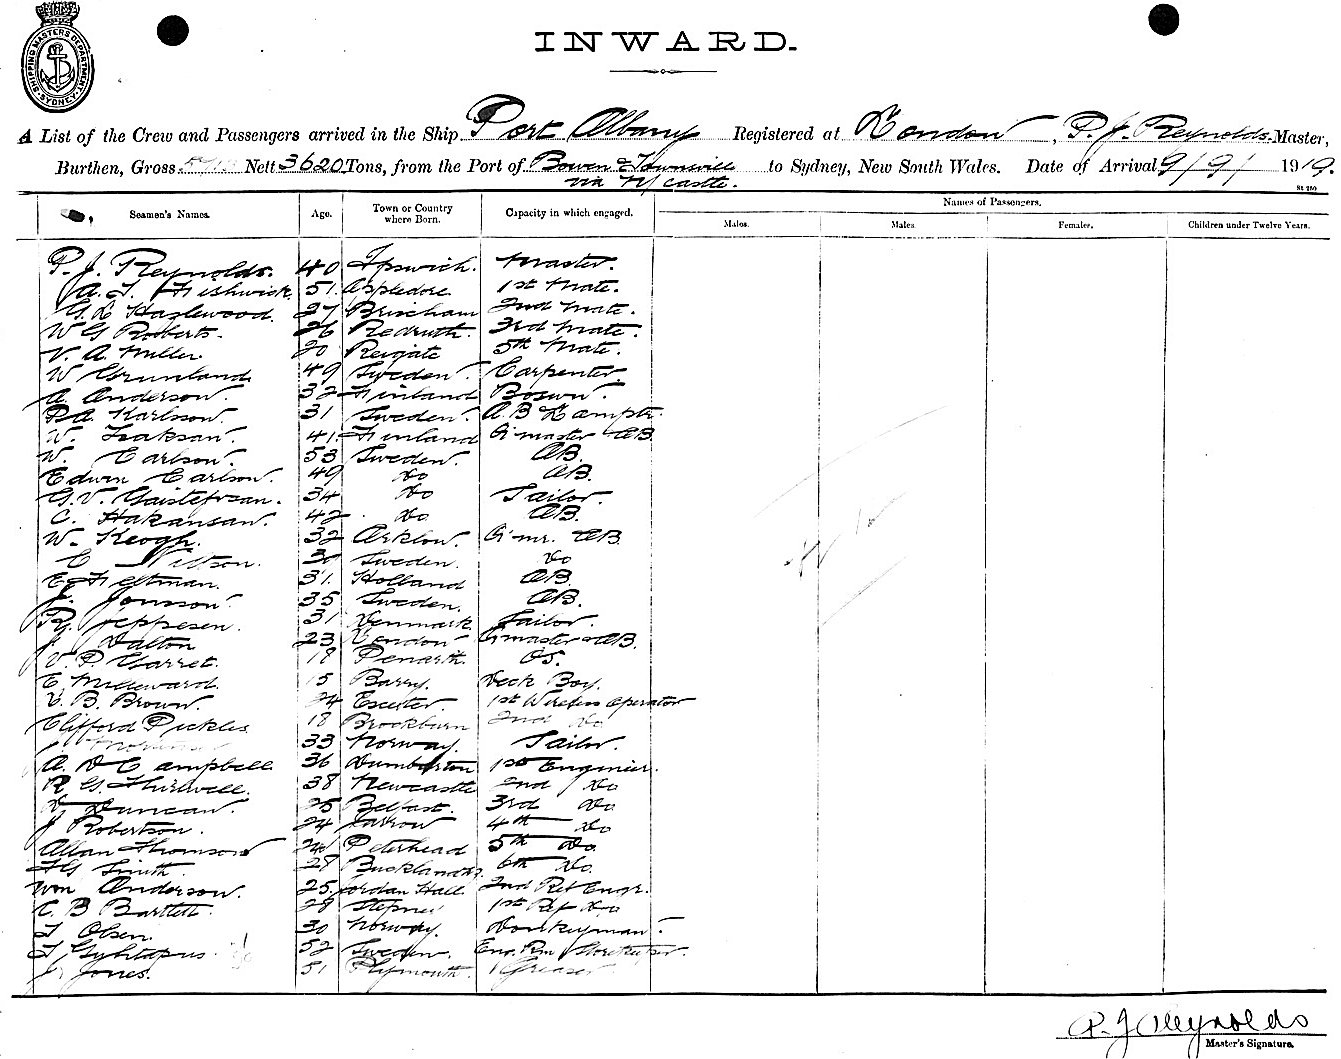 SHIPPING MASTERS DEPARTMENT SYDNEY
INWARD.
A List of the Crew and Passengers arrived in the Ship Port Albany Registered at London, P. J. Reynolds. Master,
Burthen, Gross Nett 3620 Tons, from the Port of Bowen & Townsville via N/castle. to Sydney, New South Wales. Date of Arrival 9/9/1919.
Seamen's Names. Age. Town or Country where Born. Capacity in which engaged. Names of Passengers.
Males. Males Females. Children under Twelve Years.
P. J. Reynolds. 40 Ipswich. Master.
A. T. Fishwick. 51. Appledore 1st Mate.
G. L Hazlewood. 27 Brixham 2nd Mate.
W G Roberts. 26 Redruth. 3rd Mate.
V. A. Miller. 20 Reigate 5th Mate.
W Grunland 49 Sweden. Carpenter.
A. Anderson. 32 Finland Bosun.
P. A. Karlsson. 31 Sweden. A B Lamptr.
W. Isaksan. 41. Finland Q' master AB.
W. Carlson. 53 Sweden. AB.
Edwin Carlson. 49 Do AB.
G. V. 34 Do Sailor.
C. Hakansan. 42 Do AB.
W. Keogh. 32 Arklow. Q' mr. AB.
C Nilson. 30 Sweden. Do
E. 31. Holland AB
J. Jonsson. 35 Sweden. AB.
R. Jeppesen. 31 Denmark. Sailor.
J. Dalton 23 London Q'master AB.
V. P. Garret. 18 Penarth. OS.
E Milleward. 15 Barry. Deck Boy.
V. B. Brown. 24 Exeter. 1st Wireless Operator
Clifford Pickles 18 Brockburn 2nd Do
33 Norway. Sailor.
A. D Campbell. 36 Dumbarton 1st Engineer.
R G. Thirlwell. 38 Newcastle 2nd Do
D. Duncan. 25 Belfast. 3rd Do
J Robertson. 24 Jarrow 4th Do
Allan Thomson 24 Peterhead 5th Do.
H G Smith. 28 6th Do.
Wm Anderson. 25. Jordan Hall 2nd Ref Engr.
C. B Bartlett. 28 Stepney 1st Ref Do
T Olsen. 30 Norway. Donkeyman.
T. 52 Sweden. Eng. Rm Storekeeper.
J. Jones. 51 Plymouth. Greaser
P. J Reynolds
Master's Signature.